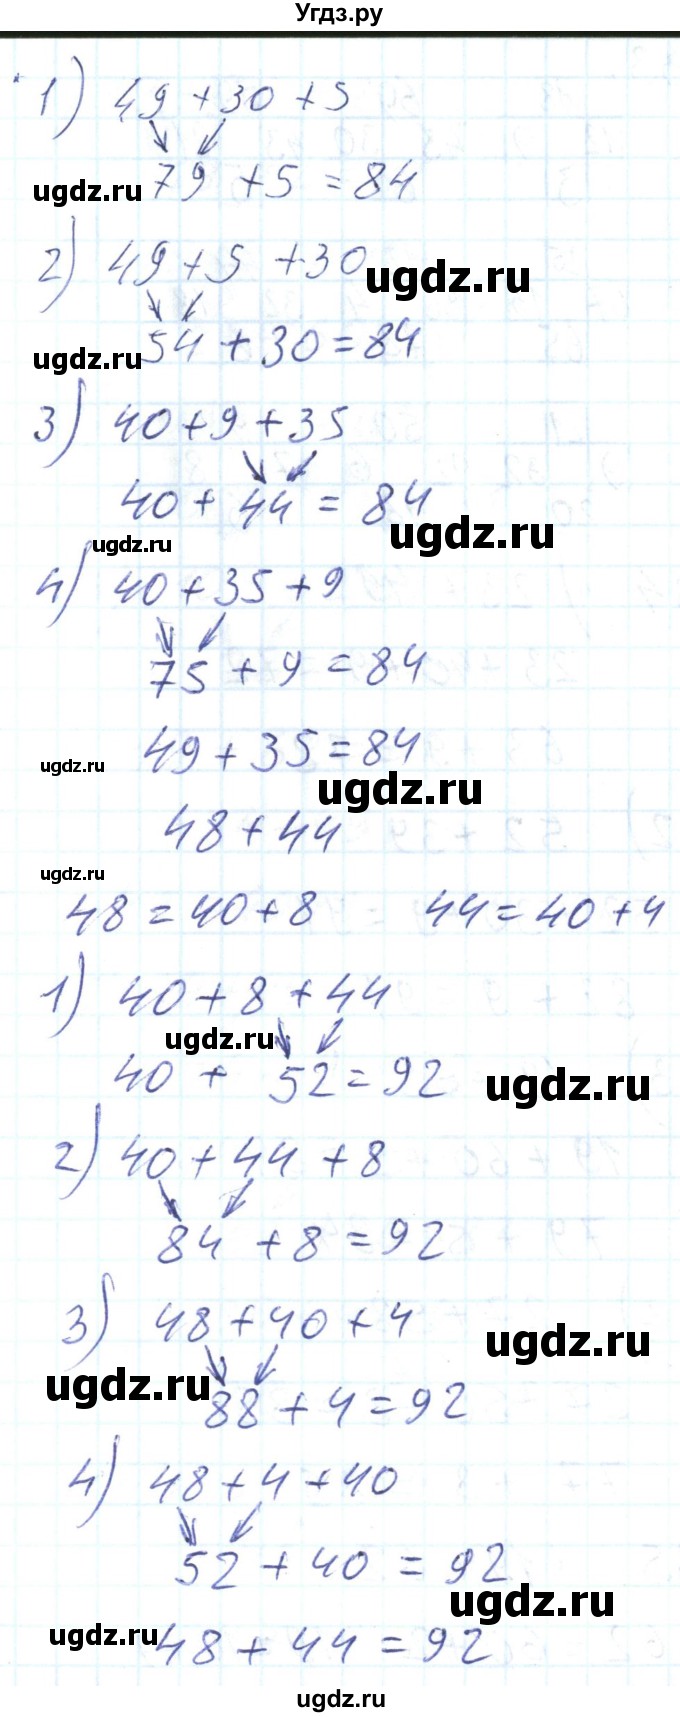 Угдз.ру
1) 49 + 30 + 5
ugdz.ru 79 + 5 = 84
2) 49 + 5 + 30
ugdz.ru
ugdz.ru 54 + 30 = 84
3) 40 + 9 + 35
40 + 44 = 84
ugdz.ru
ugdz.ru
4) 40 + 35 + 9
75 + 9 = 84
49 + 35 = 84
ugdz.ru
ugdz.ru
48 + 44
ugdz.ru
48 = 40 + 8 44 = 40 + 4
1) 40 + 8 + 44
ugdz.ru
40 + 52 = 92
ugdz.ru
2) 40 + 44 + 8
84 + 8 = 92
3) 48 + 40 + 4
ugdz.ru
ugdz.ru
88 + 4 = 92
4) 48 + 4 + 40
52 + 40 = 92
ugdz.ru
ugdz.ru 48 + 44 = 92
ugdz.ru